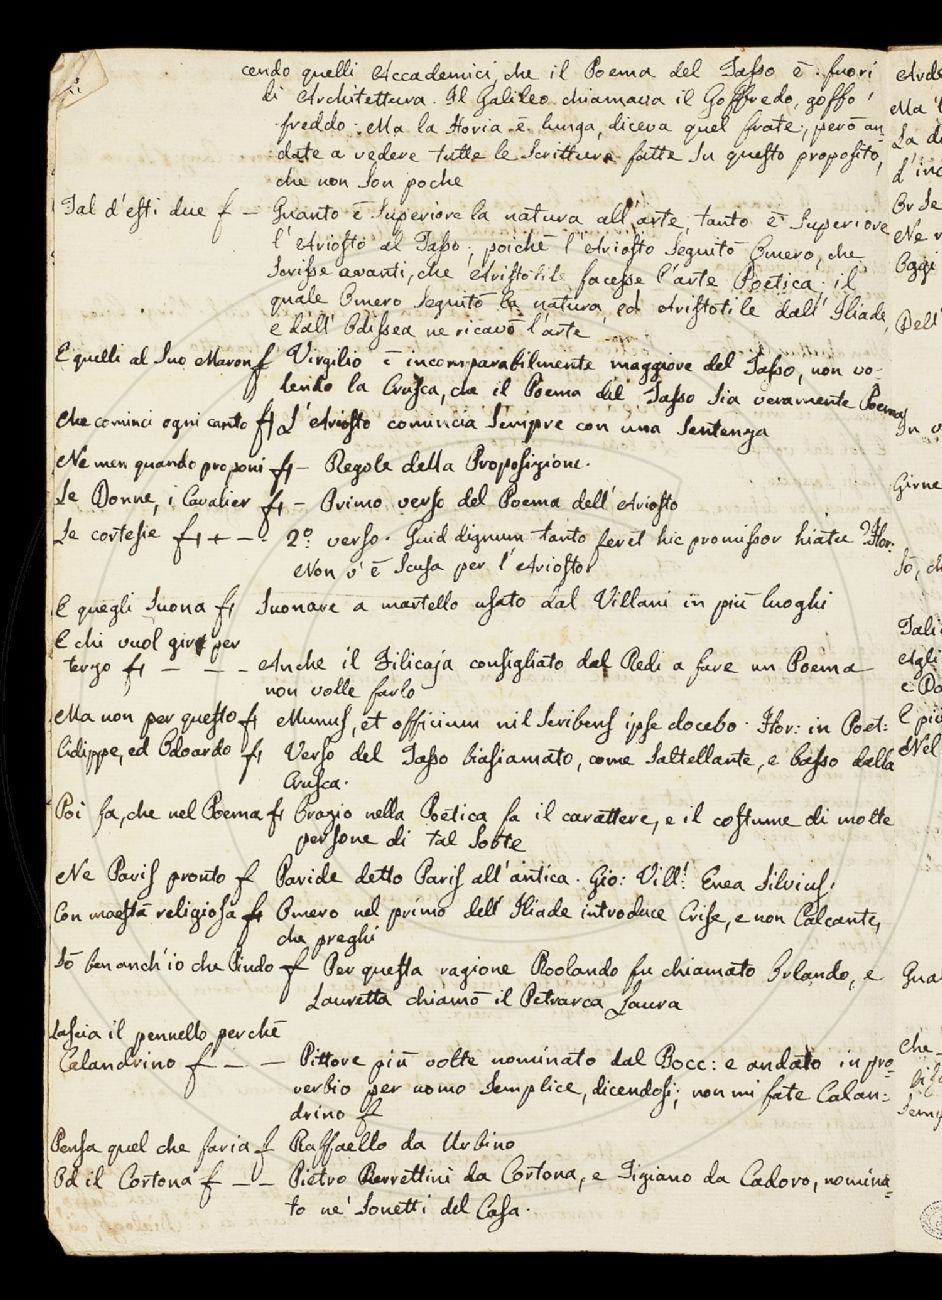 cendo quelli Accademici, che il Poema del Tasso è fuori
di Architettura. Il Galileo chiamava il Goffredo, goffo,
freddo. Ma la storia è lunga, diceva quel frate, però an=
date a vedere tutte le scritture fatte su questo proposito,
che non son poche
Tal d'esti due f — Quanto è superiore la natura all'arte, tanto è superiore
l'Ariosto al Tasso; poichè l'Ariosto seguitò Omero, che
scrisse avanti, che Aristotile facesse l'arte Poetica; il
quale Omero seguitò la natura, ed Aristotile dall'Iliade,
e dall'Odissea ne ricavò l'arte
E quelli al suo Maron f Virgilio è incomparabilmente maggiore del Tasso, non vo=
lendo la Crusca, che il Poema del Tasso sia veramente Poema
Che cominci ogni canto f L'Ariosto comincia sempre con una sentenza
Ne men quando proponi f — Regole della Proposizione.
Le Donne, i Cavalier f — Primo verso del Poema dell'Ariosto
Le cortesie f + — 2.º verso. Quid dignum tanto feret hic promissor hiatu? Hor:
Non v'è scusa per l'Ariosto
E quegli suona f Suonare a martello usato dal Villani in più luoghi
E chi vuol gire per
terzo f — — — Anche il Filicaja consigliato dal Redi a fare un Poema
non volle farlo
Ma non per questo f Munus, et officium nil scribens ipse docebo. Hor: in Poet:
Odoardo f Verso del Tasso biasimato, come saltellante, e basso dalla
Crusca.
Poi fa, che nel Poema f Orazio nella Poetica fa il carattere, e il costume di molte
persone di tal sorte
Ne Paris pronto f Paride detto Paris all'antica. Gio: Vill: Enea Silvius.
Con maestà religiosa f Omero nel primo dell'Iliade introduce Crise, e non Calcante,
che preghi
Sò ben anch'io che Pindo f Per questa ragione Roolando fu chiamato Orlando, e
Lauretta chiamò il Petrarca Laura
Lascia il pennello perchè
Calandrino f — — Pittore più volte nominato dal Bocc: e andato in pro=
verbio per uomo semplice, dicendosi; non mi fate Calan=
drino f
Pensa quel che faria f Raffaello da Urbino
Od il Cortona f — — Pietro Berrettini da Cortona, e Tiziano da Cadoro, nomina=
to ne' Sonetti del Casa.